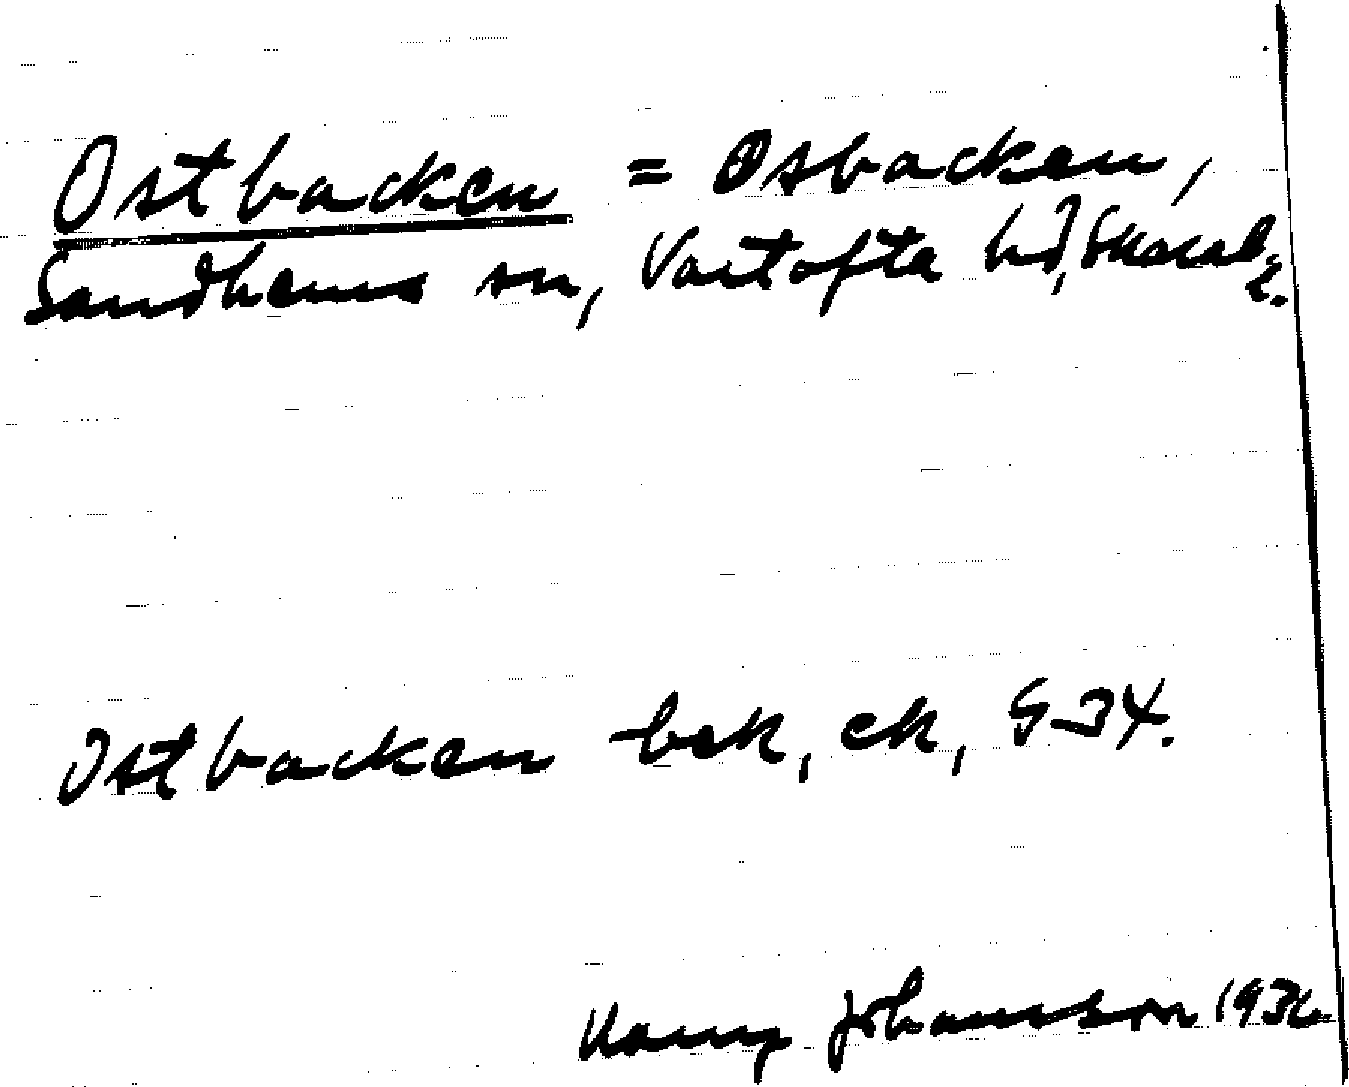 Ostbacken = Osbacken,
Sandhems sn, Vartofta hd, Skarab. l.
Ostbacken bek, ek, G34.
Harry Johansson 1936